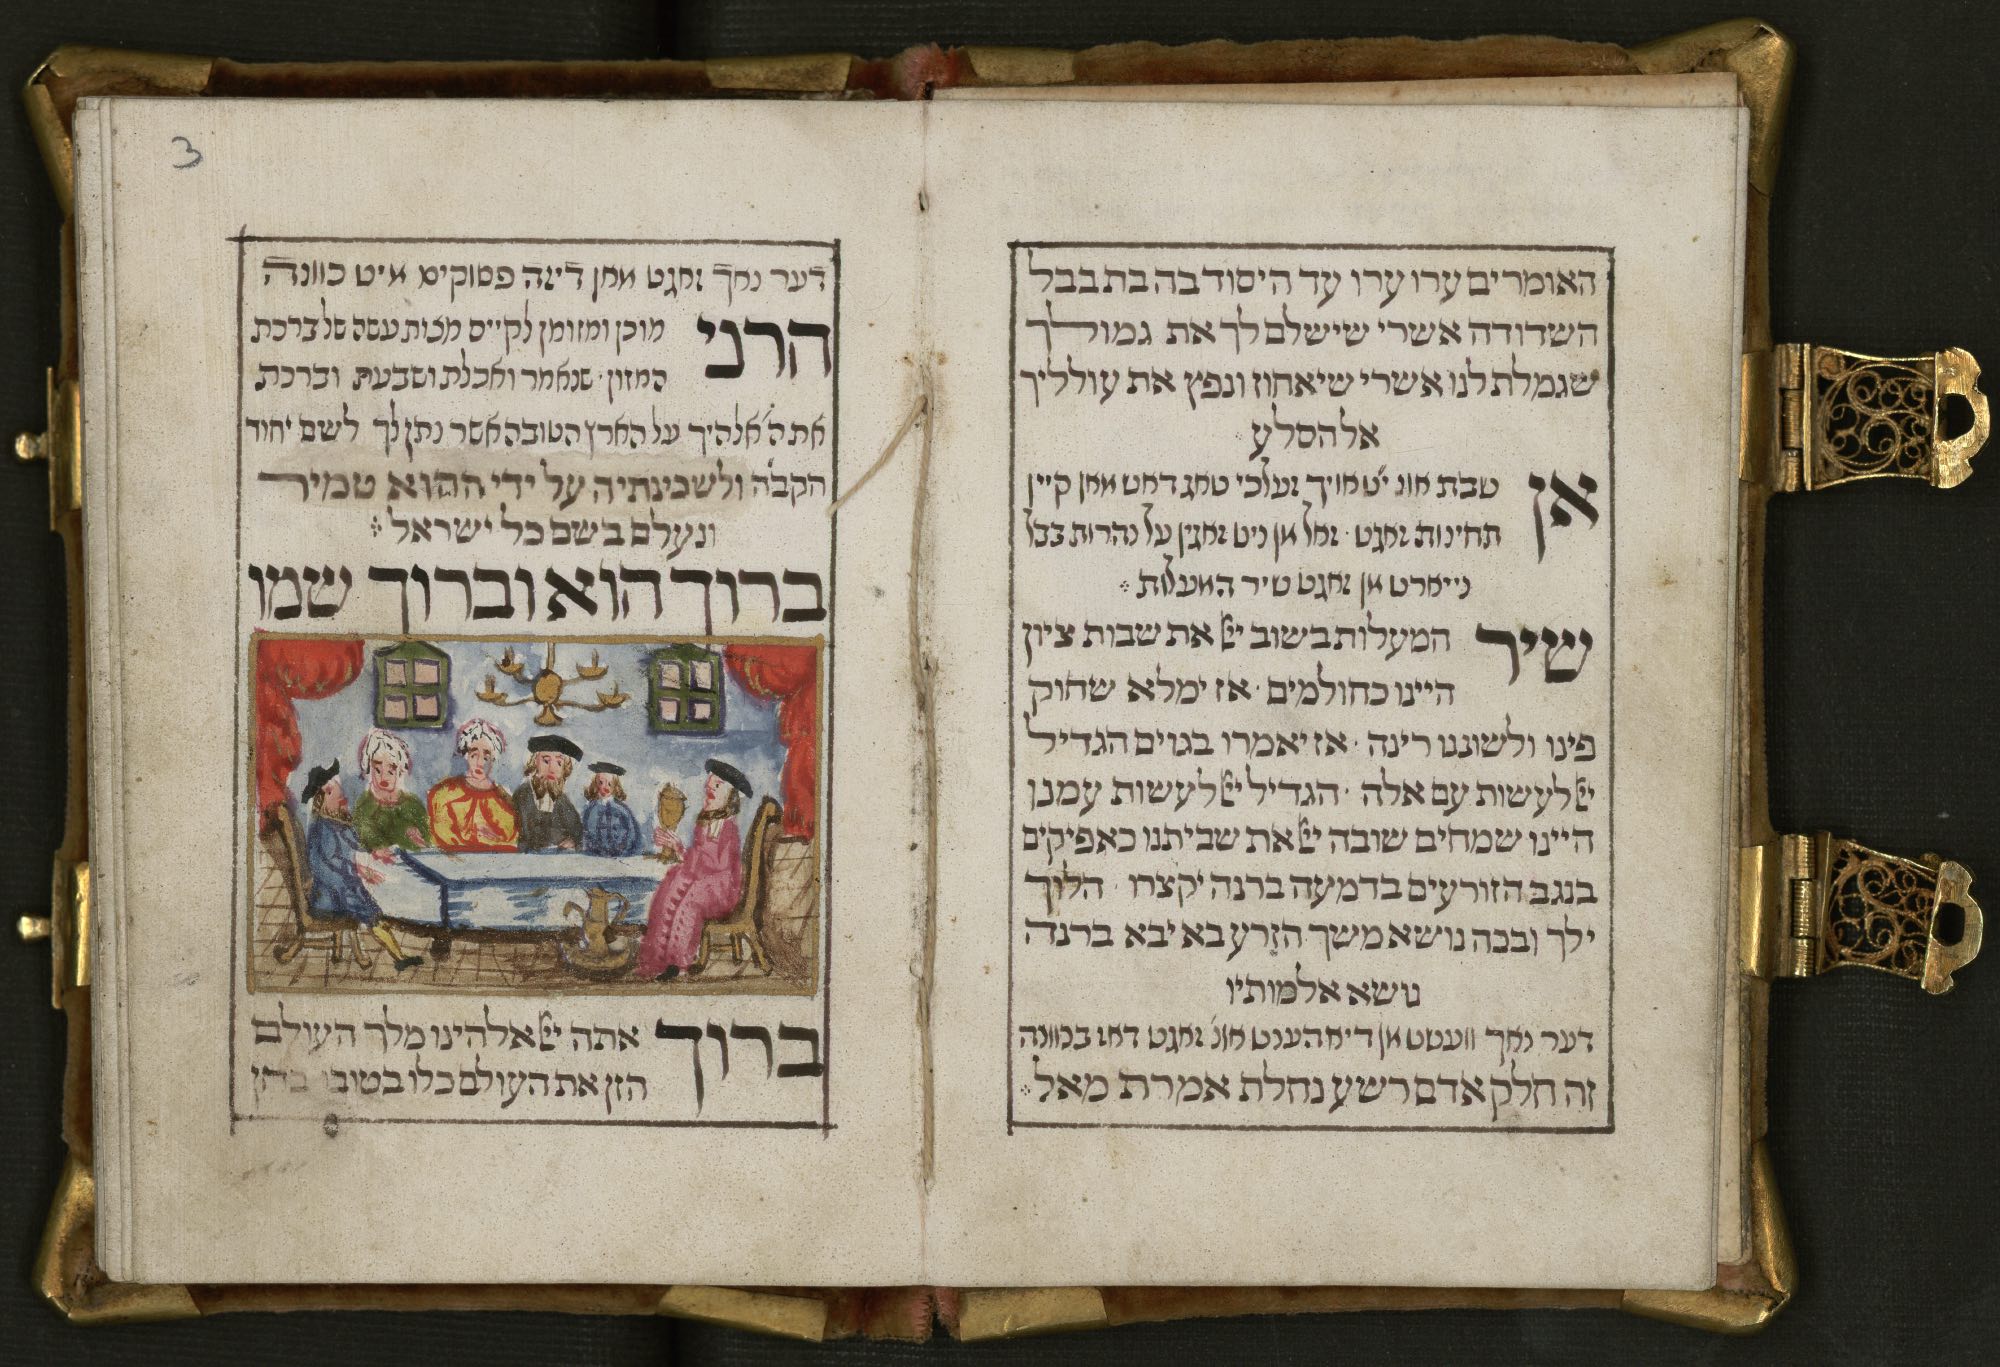 האומרים ערו ערו עד היסוד בה בת בבל
השדודה אשרי שישלם לך את גמולך
שגמלת לנו אשרי שיאחז ונפץ את עולליך
אל הסלע
אן
שבת אונ י״ט אויך זעלכי טאג דאש מאן קיין
תחינות זאגט · זאל מן ניט זאגין על נהרות בבל
נייארט מן זאגט שיר המעלות
שיר
המעלות בשוב את שבות ציון
היינו כחולמים · אז ימלא שחוק
פינו ולשוננו רינה · אז יאמרו בגוים הגדיל
לעשות עם אלה · הגדיל לעשות עמנו
היינו שמחים שובה את שביתנו כאפיקים
בנגב הזורעים בדמעה ברנה יקצרו · הלוך
ילך ובכה נושא משך הזרע בא יבא ברנה
נושא אלמותיו
דער נאך וועשט מן דיא הענט אונ׳ זאגט דאז בכוונה
זה חלק אדם רשע נחלת אמרת מאל
3
דער נאך זאגט מאן דיזה פסוקים מיט כוונה
הרני
מוכן ומזומן לקיים מצות עשה של ברכת
המזון · שנאמר ואכלת ושבעת וברכת
את ה׳ אלהיך על הארץ הטובה אשר נתן לך לשם יחוד
הקבה ולשכינתיה על ידי ההוא טמיר
ונעלם בשם כל ישראל
ברוך הוא וברוך שמו
ברוך
אתה אלהינו מלך העולם
הזן את העולם כלו בטובו בחן